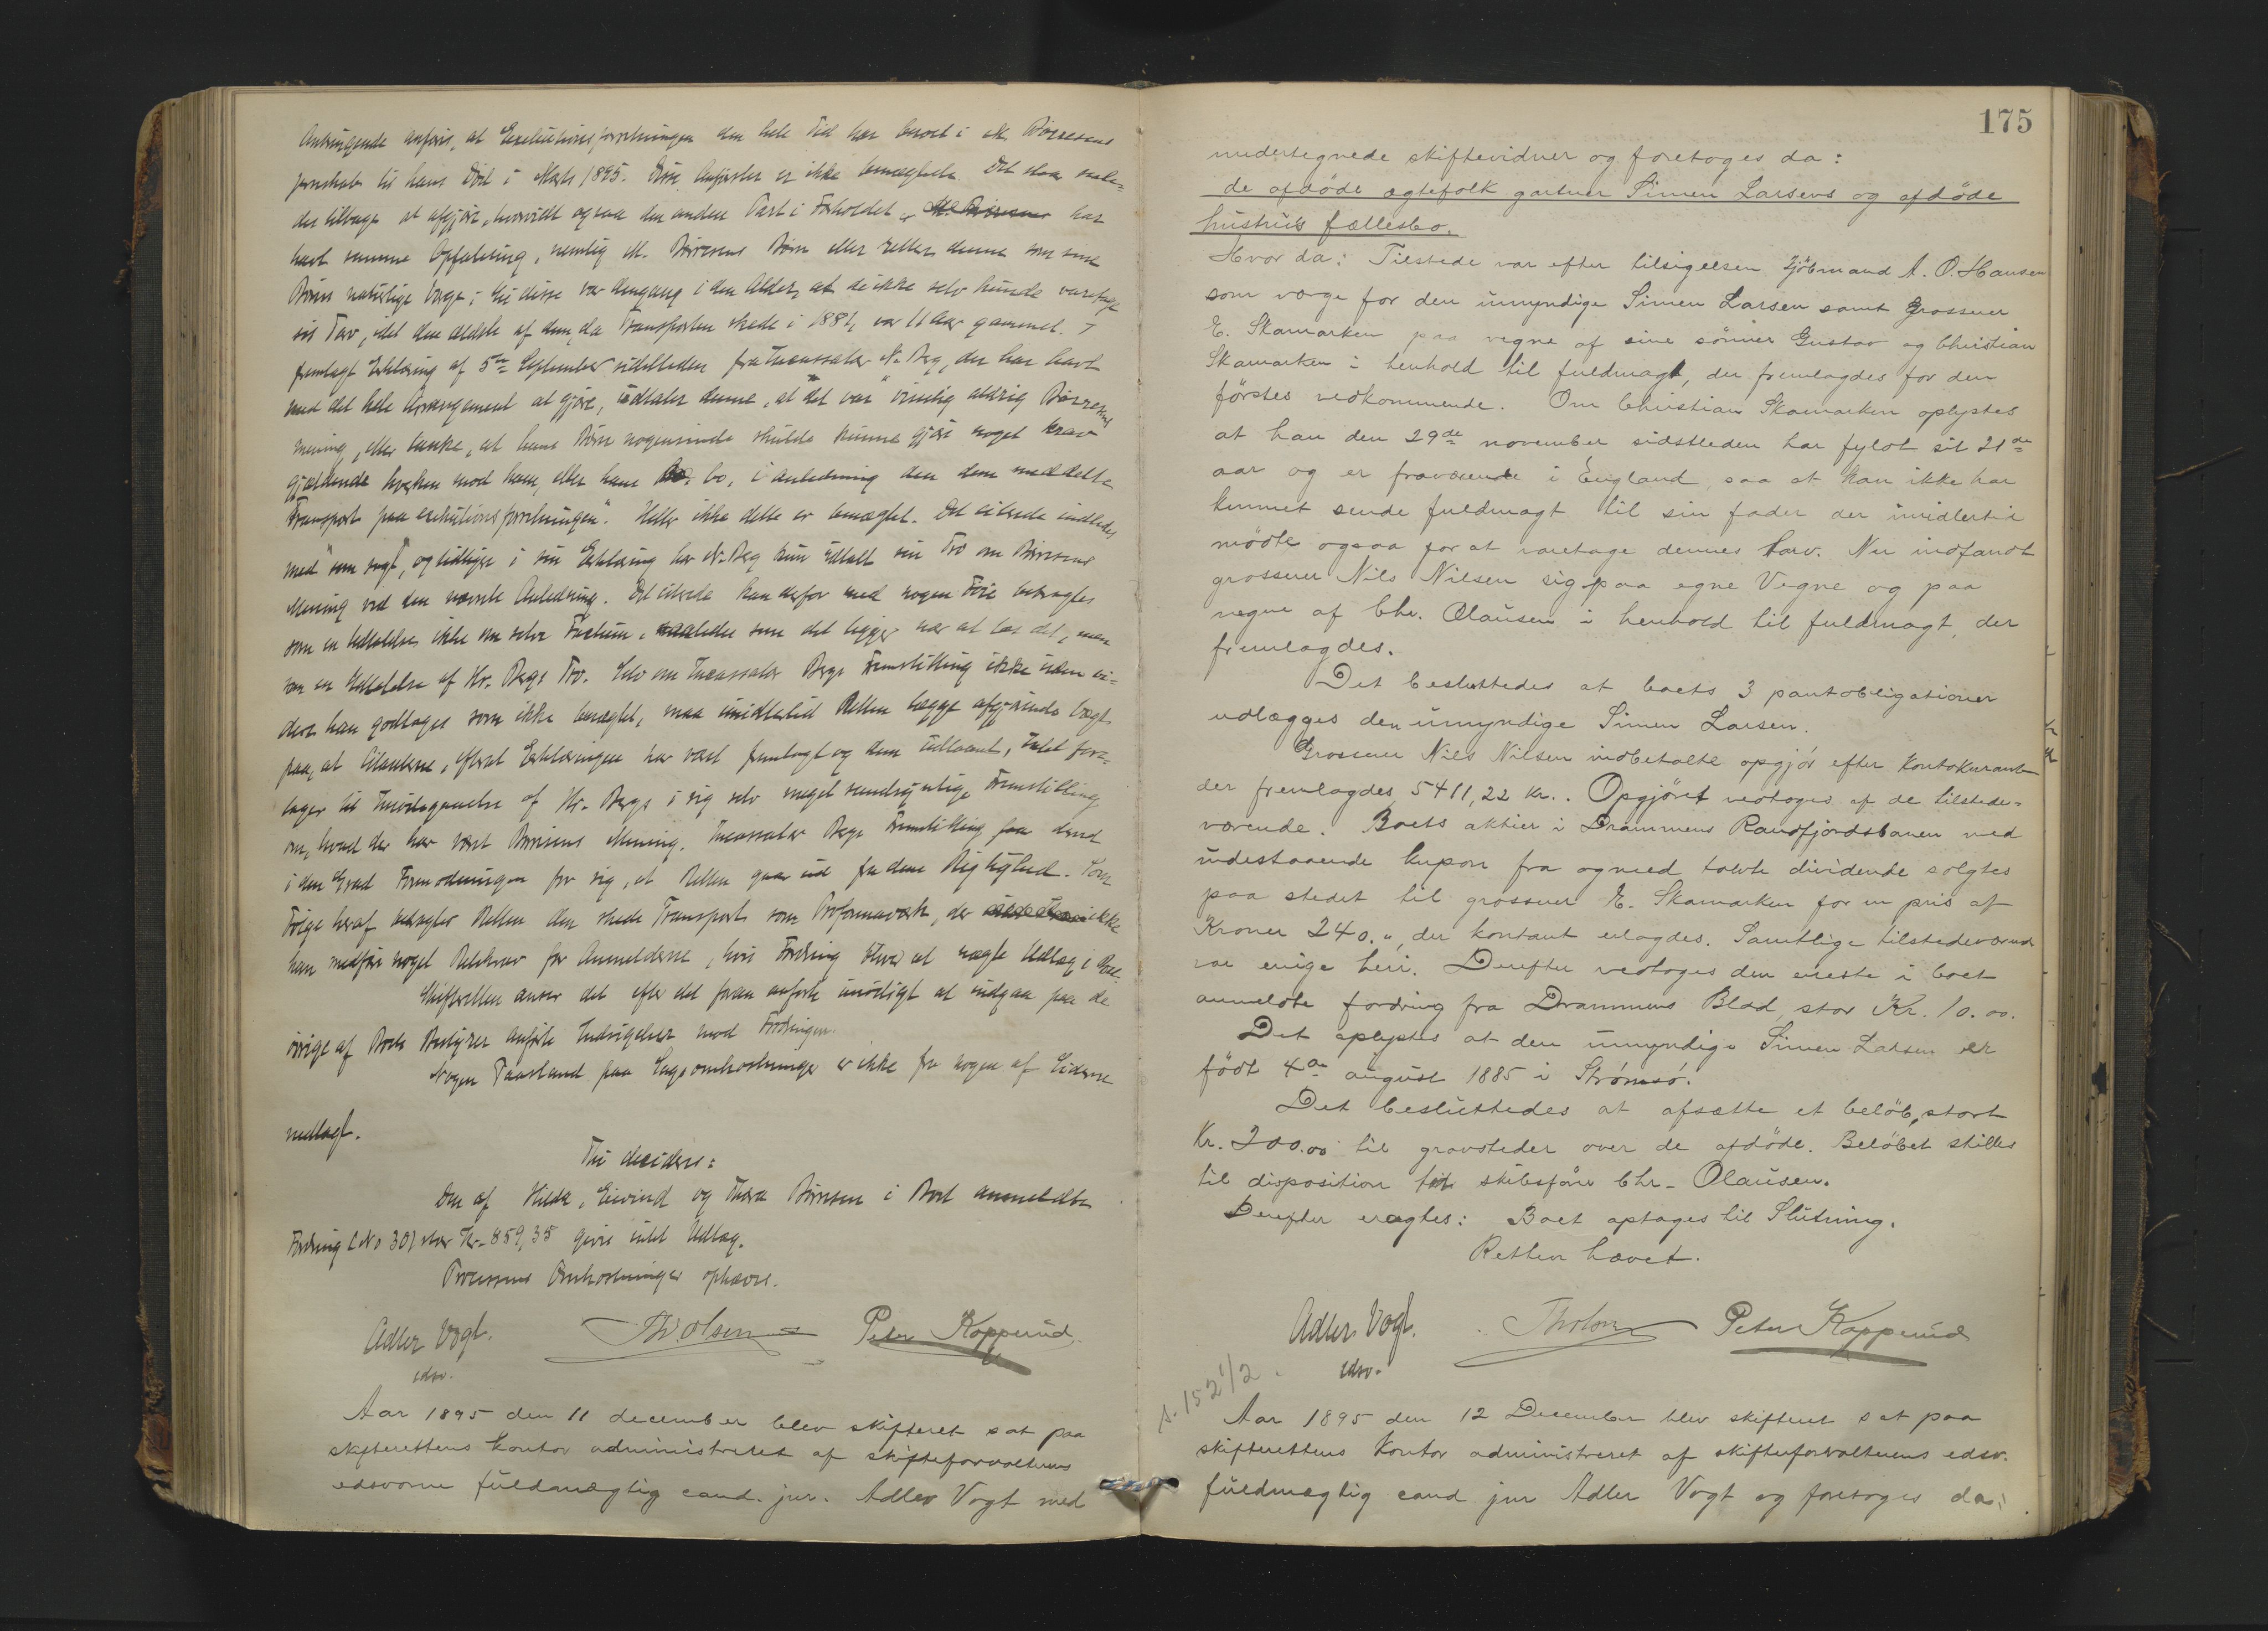 Anbringende anføres, at Exekutionsforretningen den hele Tid har beroet i M. Børresens
til hans Død i Marts 1895. Disse Anførsler er ikke benægtede. Det staar saale-
des tilbage at afgjøre, hvorvidt ogsaa den anden Part i Forholdet, har
havt samme Opfatning, nemlig M. Børresens Børn eller rettere denne som sine
Børns naturlige Værge; thi disse var dengang i den Alder, at de ikke selv kunde varetage
sit Tarv, idet den ældste af dem, da Transporten skede i 1881, var 11 Aar gammel. I
fremlagt Erklæring af 5te September sidstleden fra Incassator N. Berg, der har havt
med det hele Arrangement at gjøre, udtaler denne, at "det var vistnok aldrig Børresens
mening, eller tanke, at hans Børn nogensinde skulde kunne gjøre noget krav
gjældende hverken mod ham, eller hans bo, i anledning den dem meddelte
Transport paa exekutionsforretningen". Heller ikke dette er benægtet. Det citerede indledes
med "som sagt", og tidligere i sin Erklæring har N. Berg kun udtalt sin Tro om Børresens
Mening ved den nævnte Anledning. Det citerede kan derfor med nogen Føie betragtes
som en Udtalelse ikke om selve Factum, saaledes som det ligger nær at læse det, men
som en Udtalelse af Hr. Bergs Tro. Selv om Incassator Bergs Fremstilling ikke uden vi-
dere kan godtages som ikke benægtet, maa imidlertid Retten lægge afgjørende Vægt
paa, at Citanterne, efterat Erklæringen har været fremlagt og dem tillaant, Intet fore-
tager til Imødegaaelse af Hr. Bergs i sig selv meget sandsynlige Fremstilling
om, hvad der har vært Børresens Mening. Incassator Bergs Fremstilling faar derved
i den Grad Formodningen for sig, at Retten gaar ud fra dens Rigtighed. Som
Følge heraf betragter Retten den skede Transport som Proformaværk, der ikke
kan medføre noget Retskrav for Anmelderne, hvis Fordring bliver at nægte Udlæg i Boet.
Skifteretten anser det efter det foran anførte unødigt at indgaa paa de
øvrige af Boets Bestyrer anførte Indsigelser mod Fordringen.
Nogen Paastand paa Sagsomkostninger er ikke fra nogen af Siderne
nedlagt.
Thi decideres:
Den af Hilda, Eivind og Thora Børresen i Boet anmeldte
Fordring (No 30) stor Kr. 859,35 gives intet Udlæg.
Processens Omkostninger ophæves.
Adler Vogt. Th Olsen Peter Kopperud.
edsv.
Aar 1895 den 11 december blev skifteret sat paa
skifterettens kontor administreret af skifteforvalterens
edsvorne fuldmægtig cand. jur. Adler Vogt med
175
undertegnede skiftevidner og foretoges da:
de afdöde ægtefolk gartner Simen Larsens og afdöde
hustrus fællesbo.
Hvor da: Tilstede var efter tilsigelsen Sjömand A. O. Hansen
som værge for den umyndige Simen Larsen samt Grosserer
E. Skamarken paa vegne af sine sönner Gustav og Christian
Skamarken i henhold til fuldmagt, der fremlagdes for den
förstes vedkommende. Om Christian Skamarken oplystes
at han den 29de november sidstleden har fyldt sit 21de
aar og er fraværende i England, saa at han ikke har
kunnet sende fuldmagt til sin fader der imidlertid
mödte ogsaa for at varetage dennes tarv. Nu indfandt
grosserer Nils Nilsen sig paa egne Vegne og paa
vegne af Chr. Olausen i henhold til fuldmagt, der
fremlagdes.
Det besluttedes at boets 3 pantobligationer
udlægges den umyndige Simen Larsen.
Grosserer Nils Nilsen indbetalte opgjör efter Kontokurant
der fremlagdes 5411,22 kr.. Opgjöret vedtoges af de tilstede-
værende. Boets aktier i Drammens Randfjordsbanen med
indestaaende kupon fra og med tolvte dividende solgtes
paa stedet til grosserer E. Skamarken for en pris af
Kroner 240.", der kontant erlagdes. Samtlige tilstedeværende
var enige heri. Derefter vedtoges den eneste i boet
anmeldte fordring fra Drammens Blad, stor Kr. 10.00.
Det oplystes at den umyndige Simen Larsen er
födt 4de august 1885 i Strömsö.
Det besluttedes at afsætte et belöb, stort
Kr. 200.00 til gravsteder over de afdöde. Belöbet stilles
til disposition for skibsförer Chr. Olausen.
Derefter eragtes: Boet optages til Slutning.
Retten hævet.
Adler Vogt. Th Olsen Peter Kopperud
edsv.
s. 152 1/2.
Aar 1895 den 12 December blev skifteret sat paa
skifterettens Kontor administreret af skifteforvalterens edsv.
fuldmægtig cand jur Adler Vogt og foretoges da: